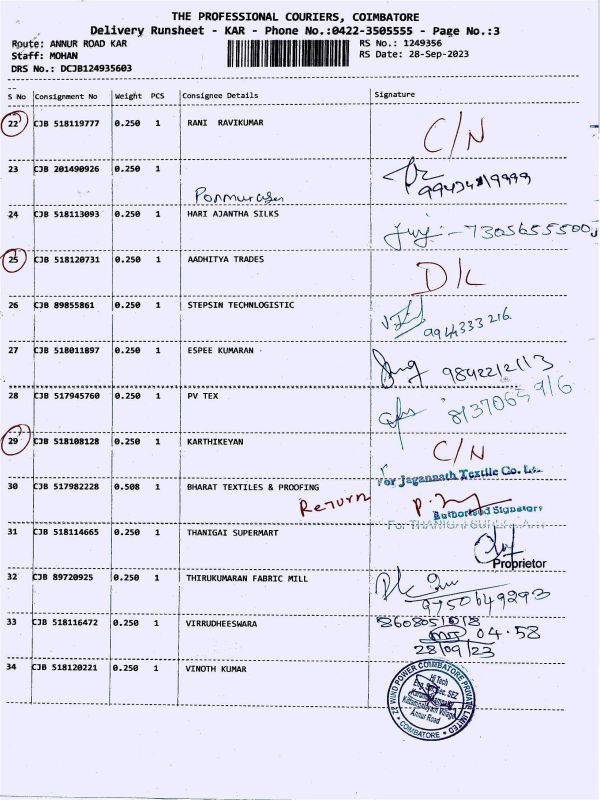 THE PROFESSIONAL COURIERS, COIMBATORE
Delivery Runsheet - KAR - Phone No.:0422-3505555 - Page No.:3
Route: ANNUR ROAD KAR
RS No.: 1249356
Staff: MOHAN
RS Date: 28-Sep-2023
DRS No.: DCJB124935603
S No Consignment No Weight PCS Consignee Details Signature
22 CJB 518119777 0.250 1 RANI RAVIKUMAR C/N
23 CJB 201490926 0.250 1
24 CJB 518113093 0.250 1 HARI AJANTHA SILKS 7305655500
25 CJB 518120731 0.250 1 AADHITYA TRADES D/L
26 CJB 89855861 0.250 1 STEPSIN TECHNLOGISTIC 9944333216
27 CJB 518011897 0.250 1 ESPEE KUMARAN 9842212113
28 CJB 517945760 0.250 1 PV TEX
29 CJB 518108128 0.250 1 KARTHIKEYAN C/N
For Jagannath Textile Co. Ltd.
30 CJB 517982228 0.508 1 BHARAT TEXTILES & PROOFING
Return
Authorised Signatory
31 CJB 518114665 0.250 1 THANIGAI SUPERMART
Proprietor
32 CJB 89720925 0.250 1 THIRUKUMARAN FABRIC MILL
9750649293
33 CJB 518116472 0.250 1 VIRRUDHEESWARA
04.58
28/09/23
34 CJB 518120221 0.250 1 VINOTH KUMAR
WIND POWER COIMBATORE PRIVATE LIMITED
Hi Tech
Annur Road
COIMBATORE